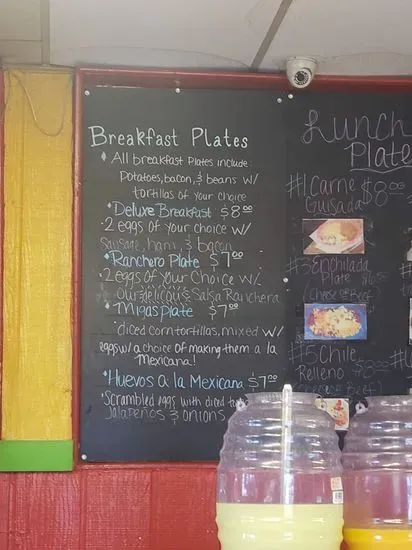 Breakfast Plates
All breakfast Plates include
Potatoes, bacon, & beans w/
tortillas of your choice
Deluxe Breakfast $8.00
2 eggs of your choice w/
Sausage, ham, & bacon
Ranchero Plate $7.00
2 eggs of your choice w/
our delicious Salsa Ranchera
Migas Plate $7.00
diced corn tortillas, mixed w/
eggs w/a choice of making them a la
Mexicana!
Huevos a la Mexicana $7.00
Scrambled eggs with diced
Jalapeños & onions
Lunch
Plate
#1 Carne $8.00
Guisada
#3 Enchilada
Plate
(Cheese or Beef)
#5 Chile
Relleno
Beef)